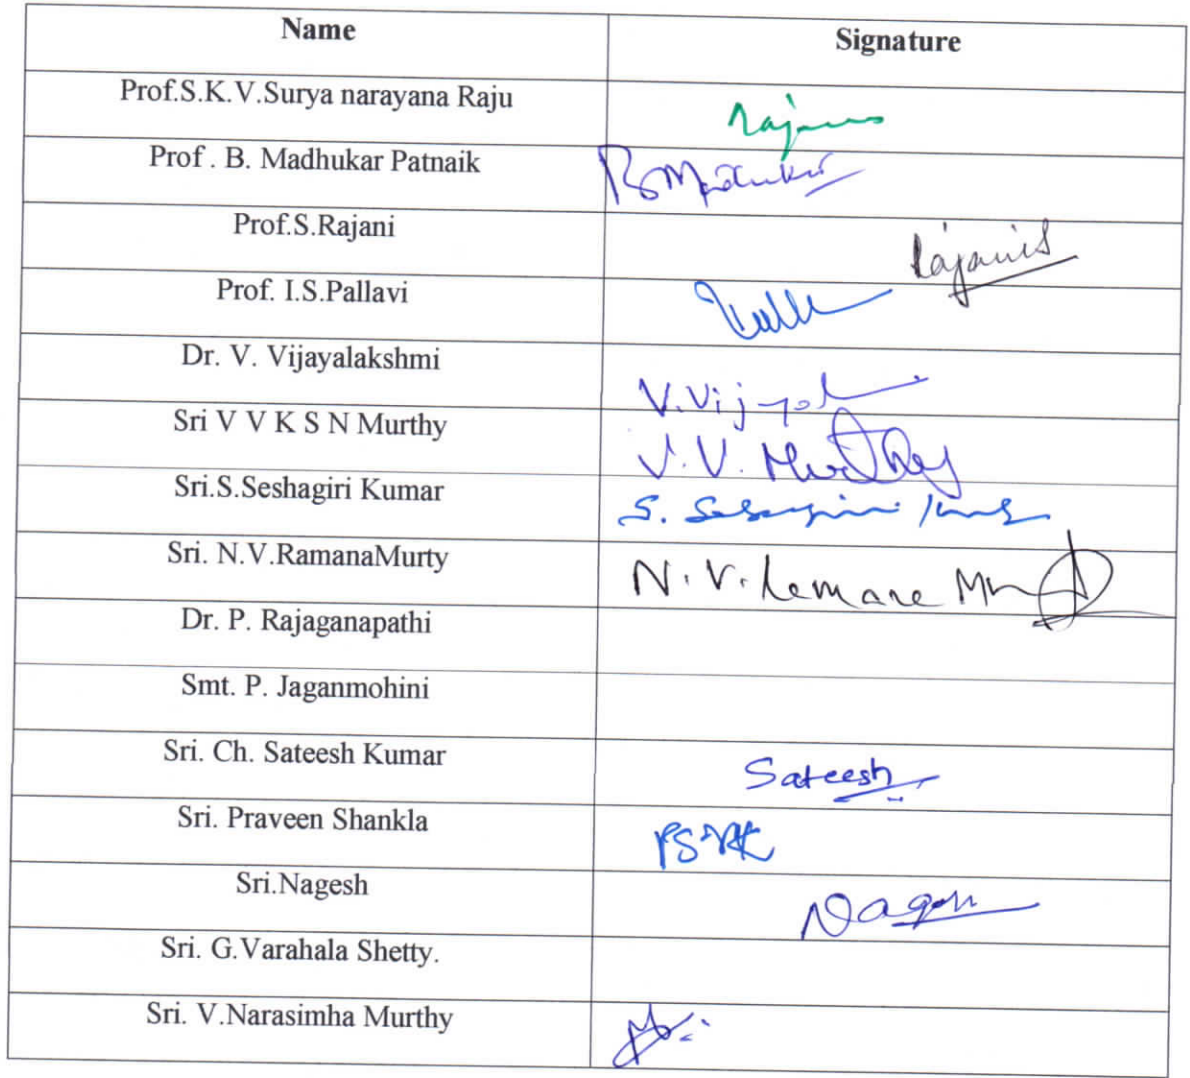 Name Signature
Prof.S.K.V.Surya narayana Raju
Prof . B. Madhukar Patnaik BMadhukar
Prof.S.Rajani Rajani S
Prof. I.S.Pallavi
Dr. V. Vijayalakshmi
Sri V V K S N Murthy V.V. Murthy
Sri.S.Seshagiri Kumar
Sri. N.V.RamanaMurty
Dr. P. Rajaganapathi
Smt. P. Jaganmohini
Sri. Ch. Sateesh Kumar Sateesh
Sri. Praveen Shankla
Sri.Nagesh
Sri. G.Varahala Shetty.
Sri. V.Narasimha Murthy